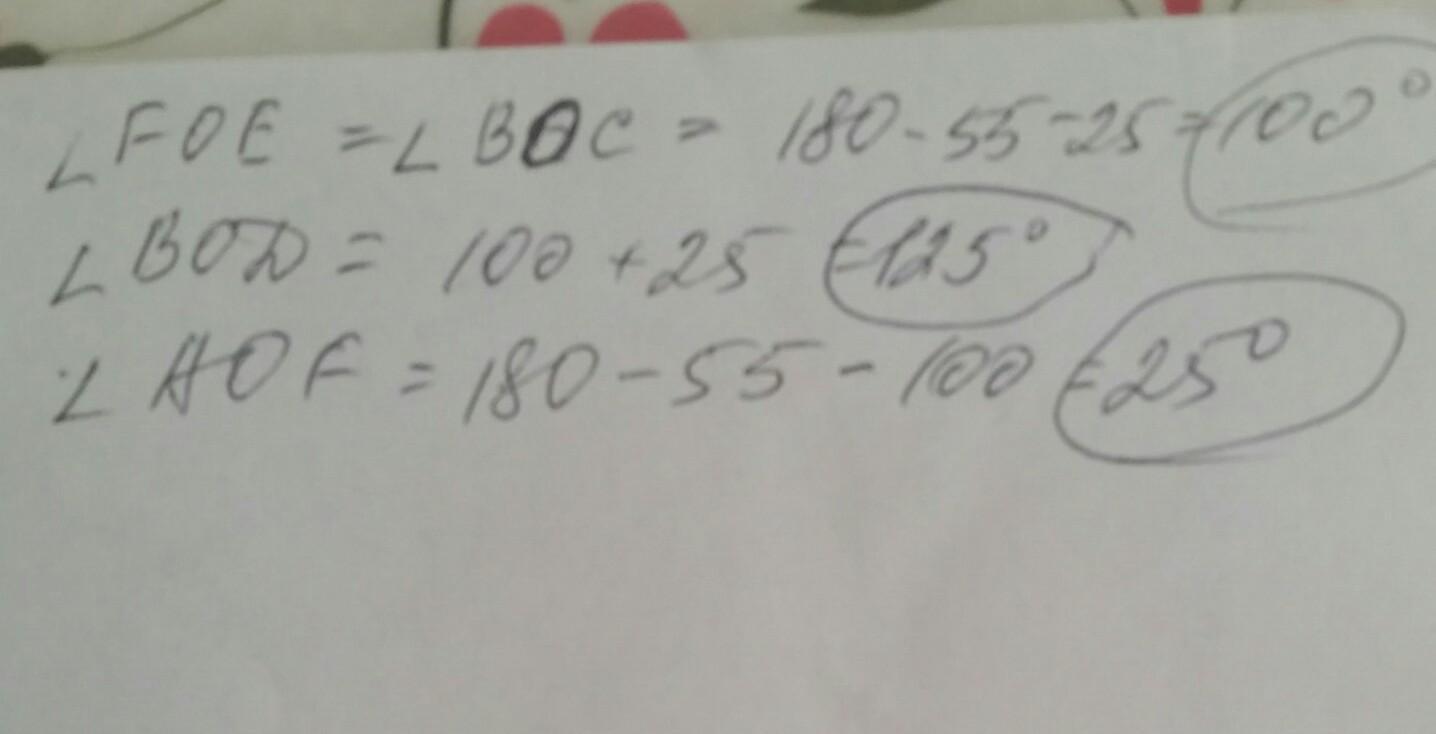 ∠FOE = ∠BOC = 180 - 55 - 25 = 100°
∠BOD = 100 + 25 = 125°
∠AOF = 180 - 55 - 100 = 25°